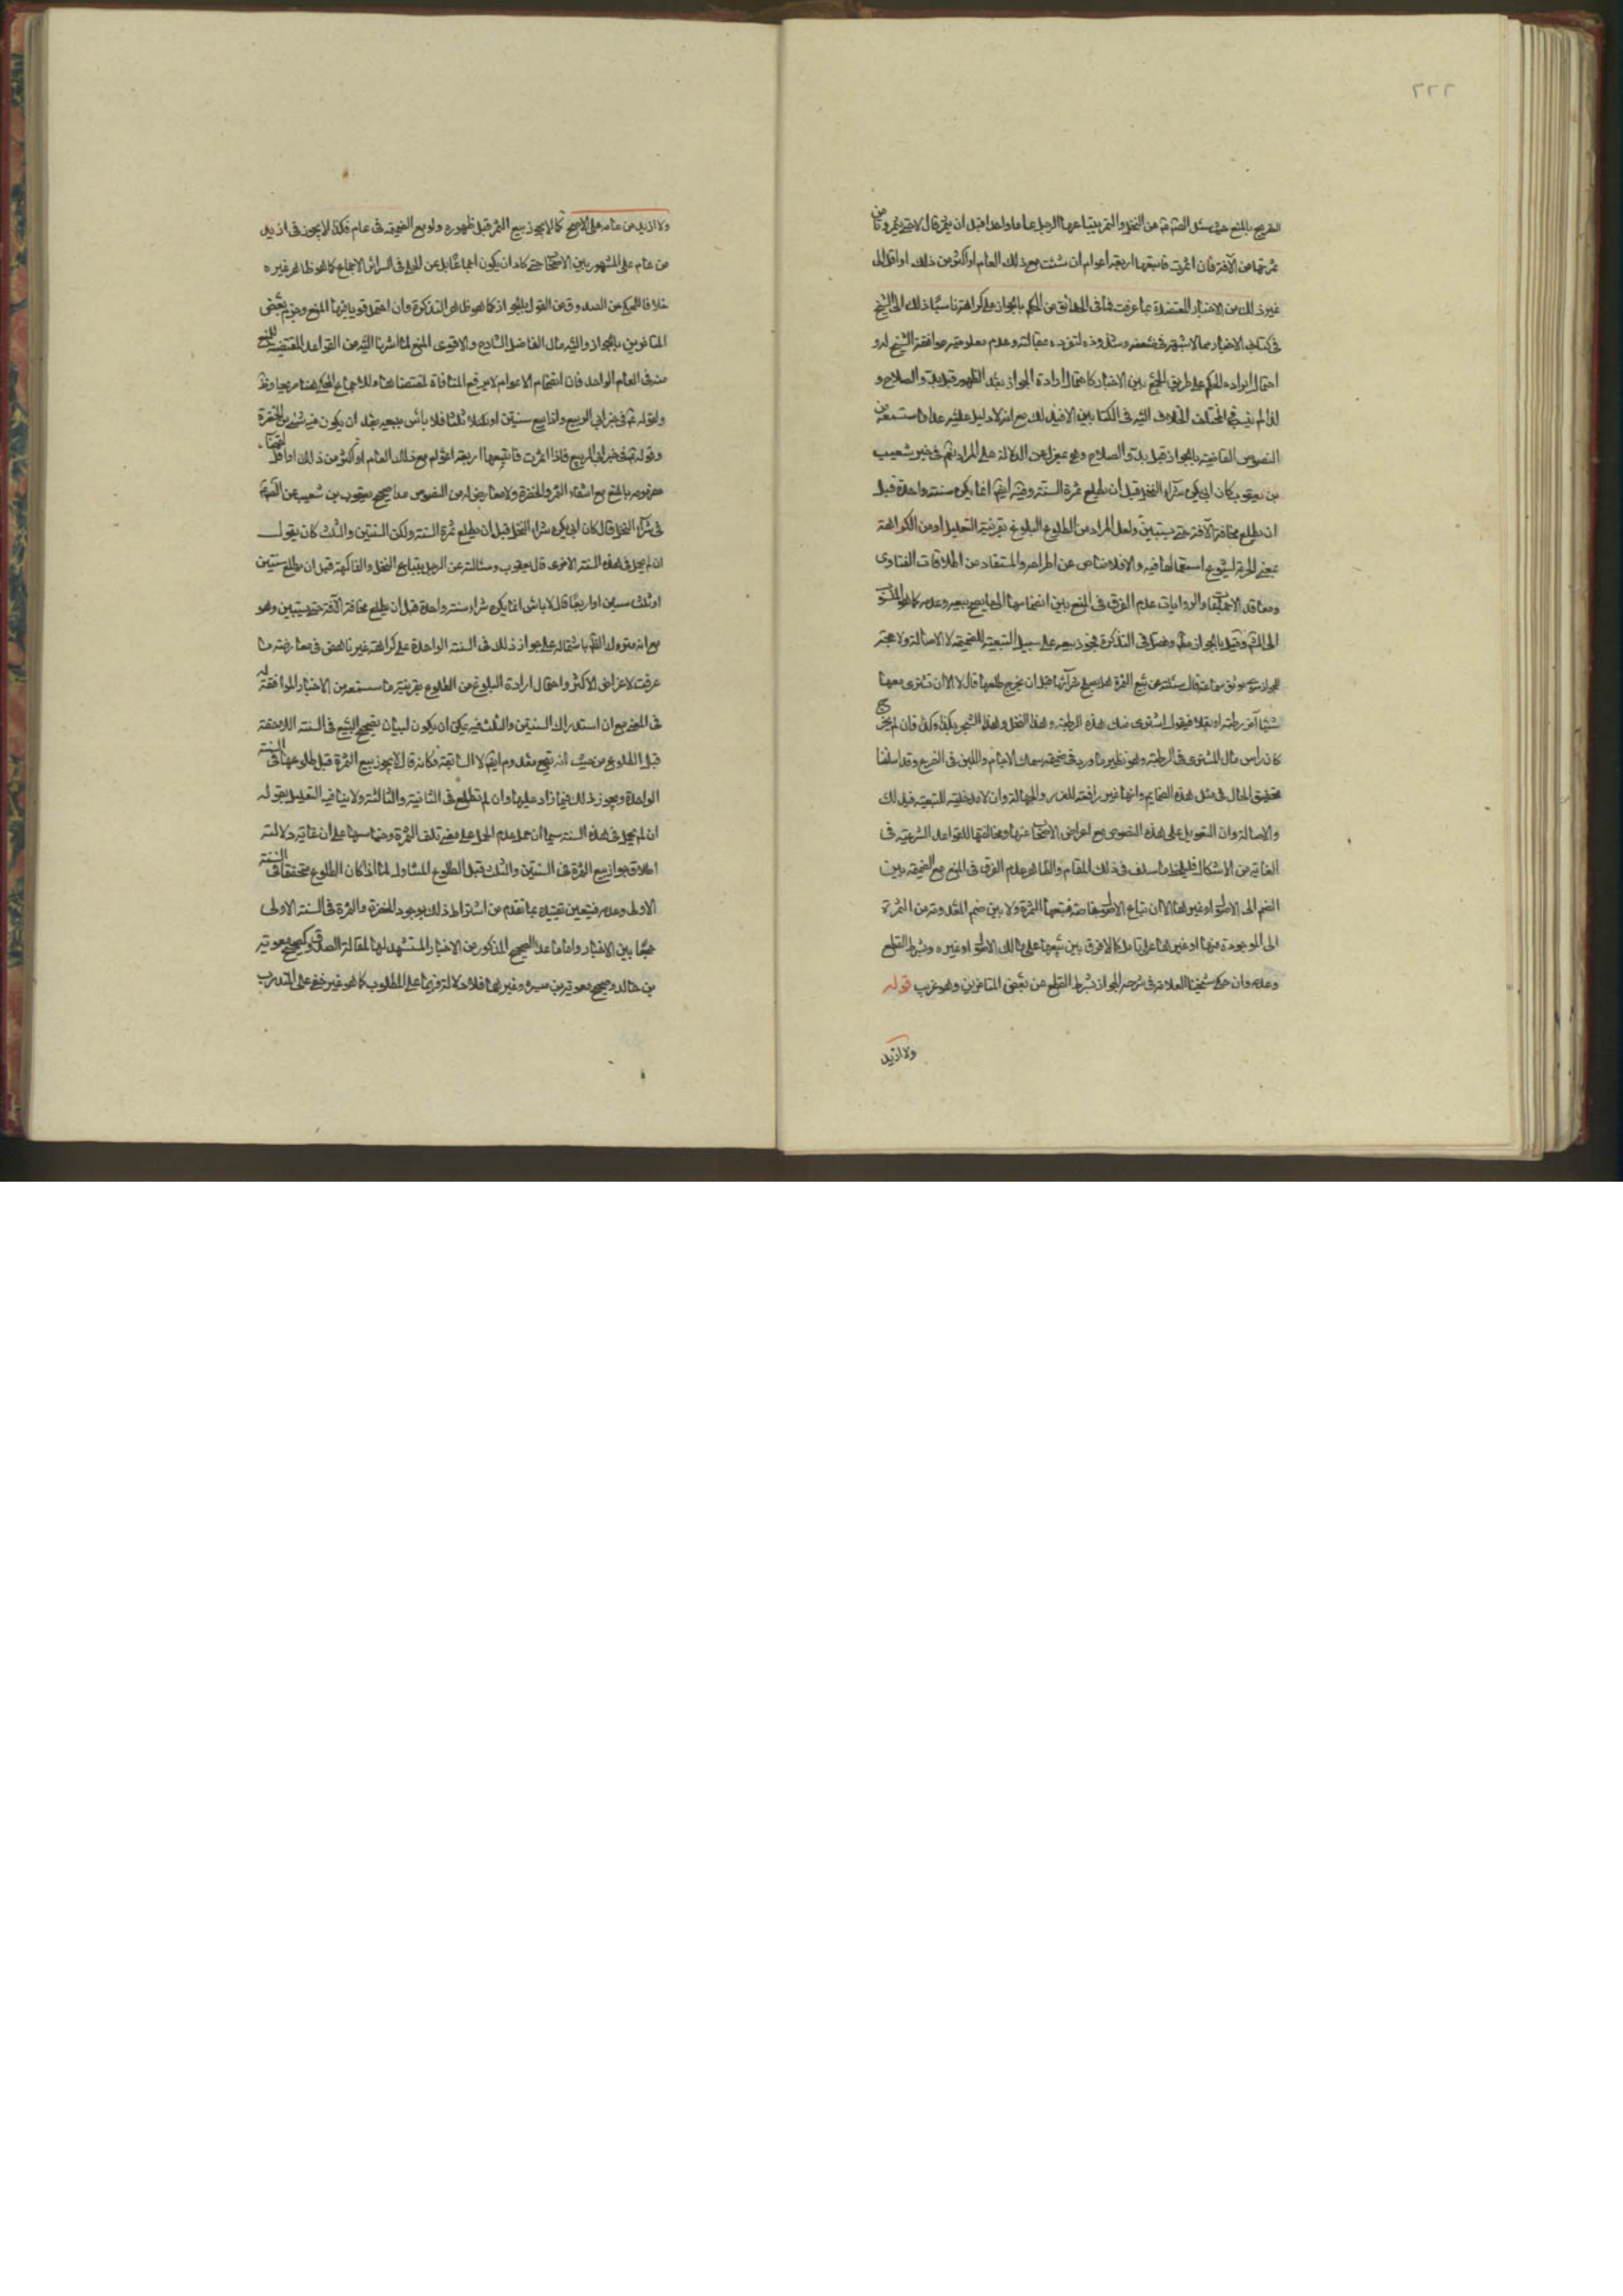 ٢٢٢
الصريح بالمنع حيث سئل الصادق عن النخل والتمر يبتاعهما الرجل عاما واحدا قبل ان يثمر قال لا حتى يثمر وتأمن
ثمرتها من الآفة فان اثمرت فابتعها اربعة اعوام ان شئت مع ذلك العام او اكثر من ذلك او اقل الى
غير ذلك من الاخبار المعتضدة بما عرفت فما في الحدائق من الحكم بالجواز على كراهة ناسبا ذلك الى الشيخ
في كتاب الاخبار مما لا شبهة في ضعفه وشذوذه لتفرده بمقالته وعدم معلومية موافقة الشيخ له و
احتمال ايراده للحكم على طريق الجمع بين الاخبار كاحتمال ارادة الجواز بعد الظهور قبل بدو الصلاح و
لذا لم ينسب في المختلف الخلاف اليه في الكتابين الا في ذلك مع انه لا دليل عليه عدا ما ستسمعه من
النصوص القاضية بالجواز قبل بدو الصلاح وهو بمعزل عن الدلالة على المراد نعم في خبر شعيب
بن يعقوب كان ابي يكره شراء النخل قبل ان يطلع ثمرة السنة وفيه ايضا انما يكره سنة واحدة قبل
ان يطلع مخافة الآفة حتى يستبين ولعل المراد من الطلوع البلوغ بقرينة التعليل او من الكراهة
بمعنى الحرمة لشيوع استعمالها فيه والا فلا مناص عن اطراحه والمستفاد من اطلاقات الفتاوى
ومعاقد الاجماعات والروايات عدم الفرق في المنع بين انضمامها الى ما يصح بيعه وعدمه كما هو المنسوب
الى وقيل بالجواز وفصل في التذكرة فجوز بيعه على سبيل التبعية للضميمة لا الاصالة ولا حجة
للجواز سوى موثق سماعة قال سئلته عن بيع الثمرة هل يصلح شراؤها قبل ان يخرج طلعها قال لا الا ان تشترى معها
شيئا آخر رطبة او بقلا فيقول اشترى منك هذه الرطبة وهذا النخل وهذا الشجر بكذا وكذا فان لم يخرج
كان راس مال المشترى في الرطبة وهو نظير ما ورد في ضميمة سمك الاجام واللبن في الضرع وقد اسلفنا
تحقيق الحال في مثل هذه الضمايم وانها غير رافعة للغرر والجهالة وان لا مدخلية للتبعية في ذلك
والاصالة وان التعويل على هذه النصوص مع اعراض الاصحاب عنها ومخالفتها للقواعد الشرعية في
الغاية من الاشكال فليلحظ ما سلف في ذلك المقام والظاهر عدم الفرق في المنع مع الضميمة بين
الضم الى الاصول او غيرها الا ان تباع الاصول خاصة فتتبعها الثمرة ولا بين ضم المعدومة من الثمرة
الى الموجودة منها او غيرها على تامل كما لا فرق بين بيعها على مالك الاصول او غيره وشرط القطع
وعدمه وان حكى شيخنا العلامة في شرحه الجواز بشرط القطع عن بعض المتاخرين وهو غريب قوله
ولا ازيد
ولا ازيد من عام على الاصح كما لا يجوز بيع الثمر قبل ظهوره ولو مع الضميمة في عام فكذا لا يجوز في ازيد
من عام على المشهور بين الاصحاب حتى كاد ان يكون اجماعا بل عن الحلي في السرائر الاجماع كما هو ظاهر غيره
خلافا للمحكى عن الصدوق من القول بالجواز كما هو ظاهر التذكرة وان احتمل قويا فيها المنع وجزم بعض
المتاخرين بالجواز واليه مال الفاضل الشارح والاقوى المنع لما اشرنا اليه من القواعد المقتضية للمنع
منه في العام الواحد فان انضمام الاعوام لا يرفع المنافاة لمقتضاها وللاجماع المحكى هنا صريحا
ولقوله في خبر ابي الربيع واذا بيع سنتين او ثلاثا فلا بأس ببيعه بعد ان يكون فيه شئ من الخضرة
وقوله في خبر ابي الربيع فاذا اثمرت فابتعها اربعة اعوام مع ذلك العام او اكثر من ذلك او اقل
مفهومه بالمنع مع انتفاء الثمر والخضرة ولا معارض له من النصوص عدا صحيح يعقوب بن شعيب عن الصادق
في شراء النخل قال كان ابي يكره شراء النخل قبل ان يطلع ثمرة السنة ولكن السنتين والثلث كان يقول
ان لم يحمل في هذه السنة الاخرى قال يعقوب وسئالته عن الرجل يبتاع النخل والفاكهة قبل ان يطلع سنتين
او ثلث سنين او اربعا قال لا باس انما يكره شراء سنة واحدة قبل ان يطلع مخافة الآفة حتى يستبين وهو
مع انه متروك الظاهر باشتماله على جواز ذلك في السنة الواحدة على كراهة غير ناهض في معارضة ما
عرفت لاعراض الاكثر واحتمال ارادة البلوغ من الطلوع بقرينة ما ستسمعه من الاخبار الموافقة له
في المعنى مع ان استدراك السنتين والثلث فيه يمكن ان يكون لبيان تصحيح البيع في السنة اللاحقة
قبل الطلوع من حيث انه بيع معدوم ايضا لا السابقة فكانه قال لا يجوز بيع الثمرة قبل طلوعها في السنة
الواحدة ويجوز ذلك فيما زاد عليها وان لم تطلع في الثانية والثالثة ولا ينافيه التعليل بقوله
ان لم يحمل في هذه السنة سيما ان حمل عدم الحمل على معنى تلف الثمرة وخياسها على ان غاية دلالته
اطلاق جواز بيع الثمرة في السنتين والثلث قبل الطلوع المتناول لما اذا كان الطلوع متحققا في السنة
الاولى وعدمه فيتعين تقييده بما تقدم من اشتراط ذلك بوجود الخضرة والثمرة في السنة الاولى
جمعا بين الاخبار واما ما عدا الصحيح المذكور من الاخبار المستشهد لها لمقالة الصدوق كصحيح معوية
بن خالد وصحيح معوية بن ميسرة وغيرها فلا دلالة فيها على المطلوب كما هو غير خفي على المتدرب